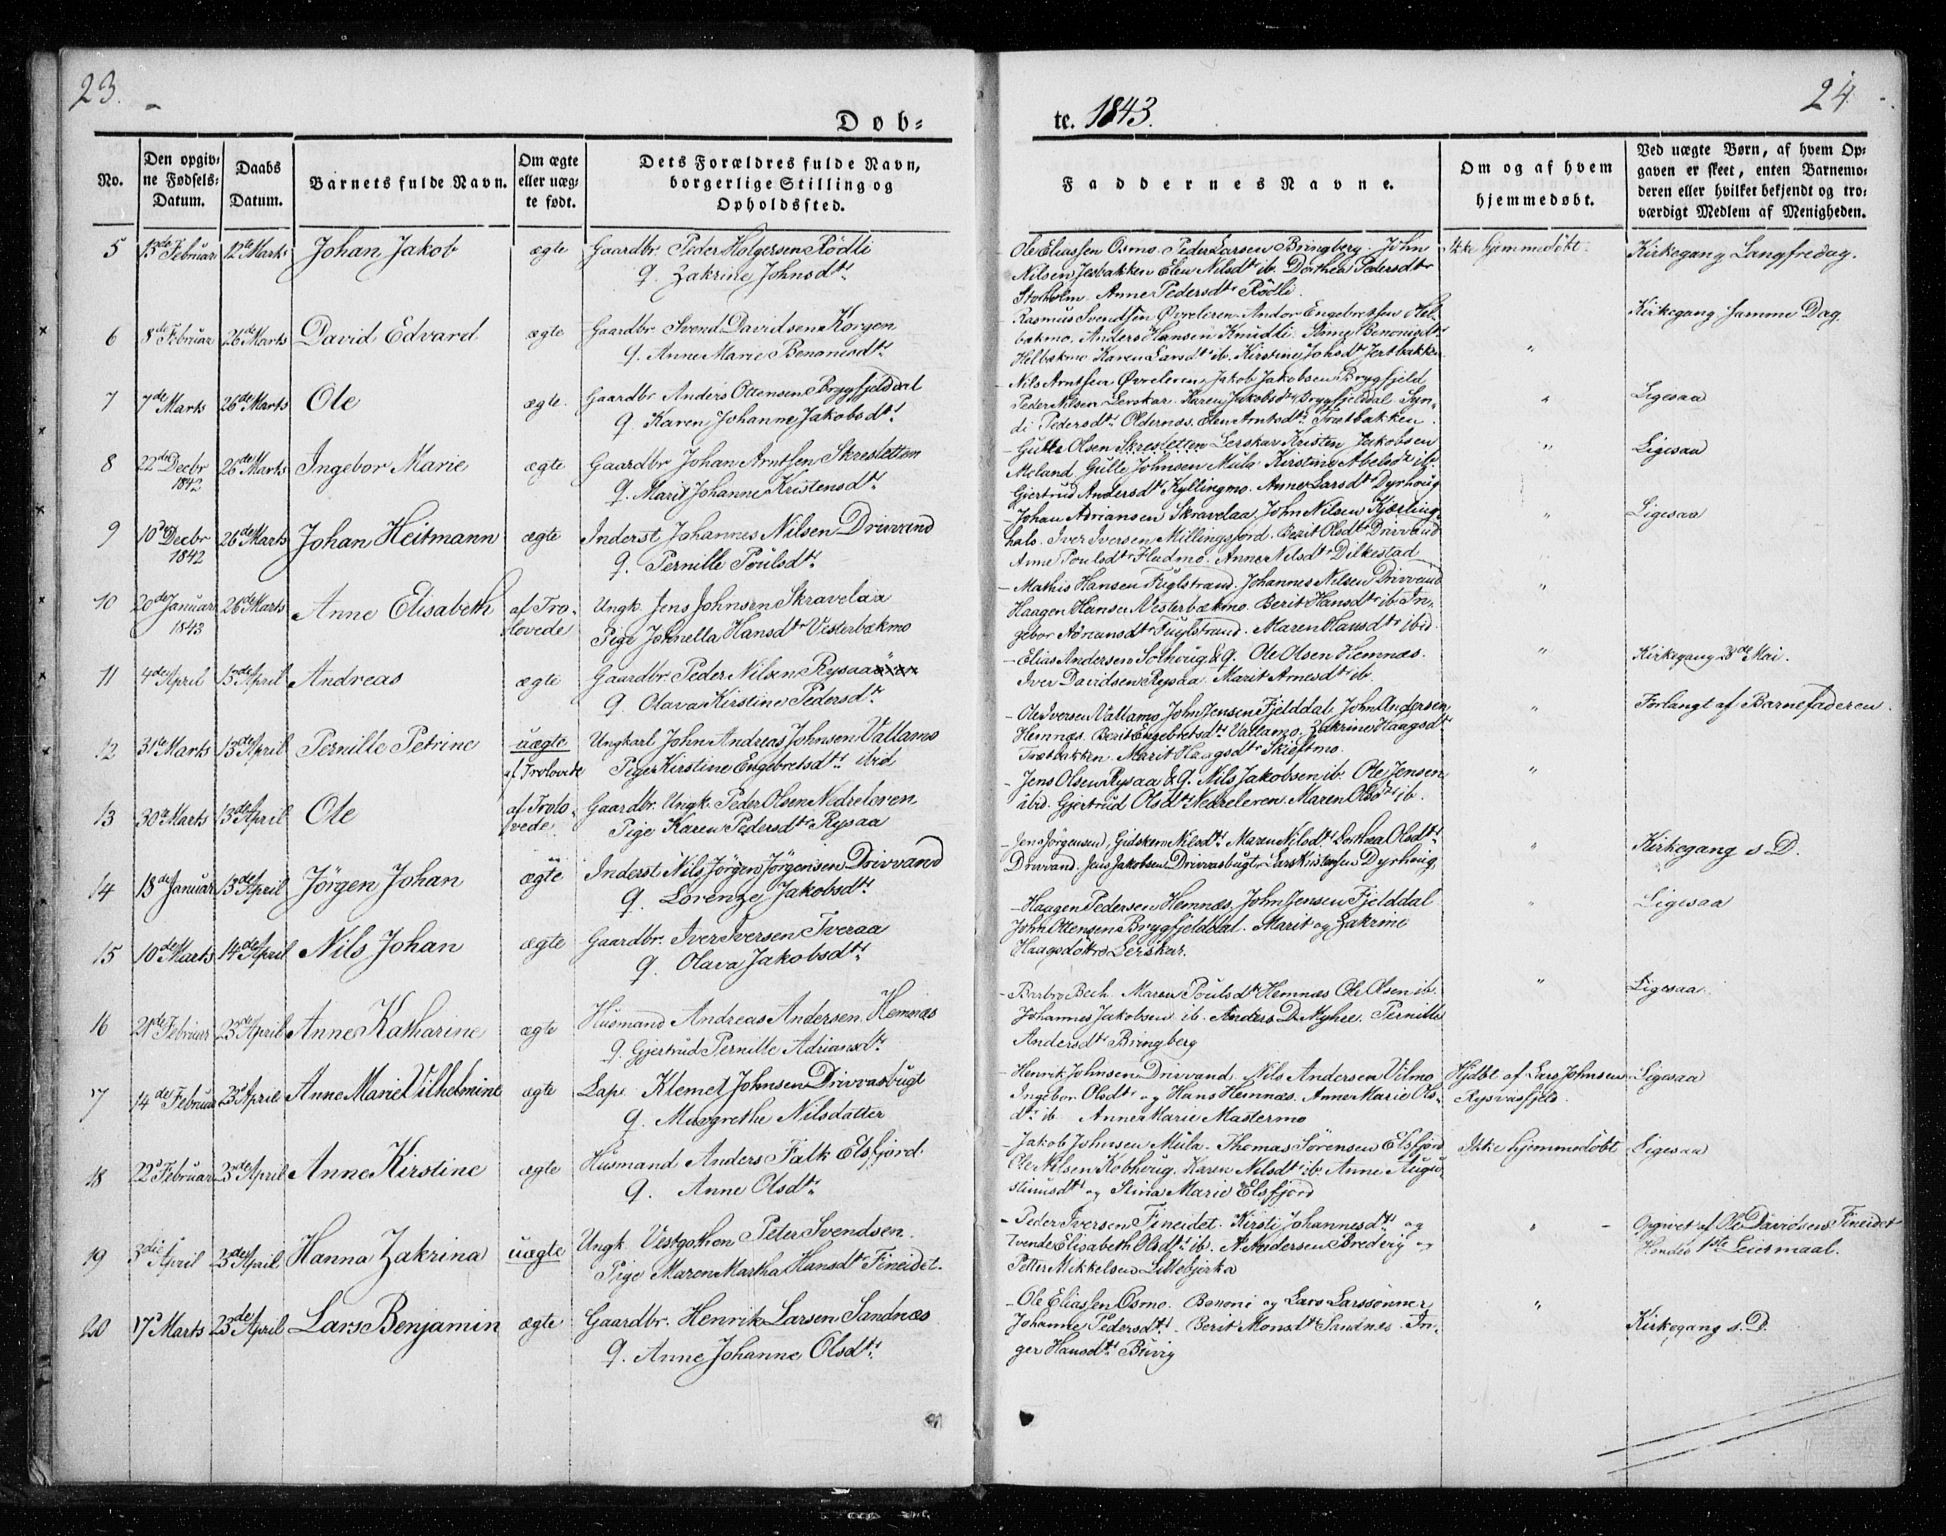 23.
24.
Dob-
te. 1843.
No.
Den opgiv-
ne Fødsels-
Datum.
Daabs
Datum.
Barnets fulde Navn.
Om ægte
eller uæg-
te født.
Dets Forældres fulde Navn,
borgerlige Stilling og
Opholdssted.
Faddernes Navne.
Om og af hvem
hjemmedøbt.
Ved uægte Børn, af hvem Op-
gaven er skeet, enten Barnemo-
deren eller hvilket bekjendt og tro-
værdigt Medlem af Menigheden.
5 15de Februar 12te Marts Johan Jakob ægte Gaardbr. Peder Holgersen Rödli
q. Zakrine Johnsdtr
Ole Eliassen Osmo. Peder Larsen Bringberg. John
Nilsen Jesbakken Elen Nilsdtr ib. Dorthea Pedersdtr
Stoholm. Anne Pedersdtr Rödli.
Ikke hjemmedöbt. Kirkegang Langfredag.
6 8de Februar 26de Marts David Edvard ægte Gaardbr. Svend Davidsen Korgen
q. Anne Marie Benonisdtr
Rasmus Svendsen Øvreleren. Andor Engebretsen Hel-
bækmo. Anders Hansen Knudli. Anne Benonisdtr
Helbækmo Karen Larsdtr ib. Kirstine Johsdtr Jertbakken
" Kirkegang samme Dag.
7 7de Marts 26de Marts Ole ægte. Gaardbr. Anders Ottensen Brygfjeldal
q. Karen Johanne Jakobsdtr
- Nils Arntsen Øvreleren, Jakob Jakobsen Brygfjeld
Peder Nilsen Lerskar. Karen Jakobsdtr Brygfjeldal Syn-
di Pedersdtr Oldernes. Elen Arntsdtr Træstbakken.
" Ligesaa
8 22de Decbr 26de Marts Ingebor Marie ægte Gaardbr Johan Arntsen Skresletten
1842 q. Marit Johanne Kristensdtr
- Gulle Olsen Skresletten Lerskar Kristen Jakobsen
Meland Gulle Johnsen Mula Kirstine Abelsdtr ib.
Gjertrud Andersdtr Kyllingmo. Anne Larsdtr Dyrhoug
" Ligesaa
9 10de Decbr 26de Marts Johan Heitmann ægte Inderst Johannes Nilsen Drivvand
1842 q. Pernille Poulsdtr
- Johan Adriansen Skravelaa John Nilsen Kjærling-
hals. Iver Iversen Millingsjord. Berit Olsdtr Drivvand
Anne Poulsdtr Fludmo. Anne Nilsdtr Dilkestad
" Ligesaa
10 20de Januar 26de Marts Anne Elisabeth af Tro- Ungk. Jens Johnsen Skravelaa
1843 lovede Pige Johnella Hansdtr Vesterbækmo
- Mathis Hansen Fuglstrand. Johannes Nilsen Drivvand
Haagen Hansen Vesterbækmo. Berit Hansdtr ib. In-
gebor Adriansdtr Fuglstrand. Maren Hansdtr ibid.
"
11 4de April 13de April Andreas ægte Gaardbr. Peder Nilsen Rysaa
q. Olava Kirstine Pedersdtr
- Elias Andersen Solhoug & q. Ole Olsen Hemnæs.
Iver Davidsen Rysaa. Marit Arnesdtr ib.
" Kirkegang 28de Mai.
12 31te Marts 13de April Pernille Petrine uægte Ungkarl John Andreas Johnsen Vallamo
af Trolovede Pige Kirstine Engebretsdtr ibid
- Ole Iversen Vallamo, John Jensen Fjelddal, John Andersen
Hemnæs. Berit Engebretsdtr Vallamo. Zakrine Haagsdtr
Træstbakken. Marit Haagsdtr Skieftmo.
" Forlangt af Barnefaderen.
13 30te Marts 13de April Ole af Trolo- Gaardbr. Ungk. Peder Olsen Nedreleren
vede. Pige Karen Pedersdtr Rysaa
- Jens Olsen Rysaa & q. Nils Jakobsen ib. Ole Jensen
ibid. Gjertrud Olsdtr Nedreleren. Maren Olsdtr ib.
"
14 18de Januar 13de April Jörgen Johan ægte Inderst Nils Jörgen Jörgensen Drivvand
q. Lorenze Jakobsdtr
Jens Jörgensen, Gidsken Nilsdtr Maren Nilsdtr Dorthea Olsdtr
Drivvand. Jens Jakobsen Drivvasbugt, Lars Kristensen Dyrhoug
" Kirkegang s D.
15 10de Marts 14de April Nils Johan ægte Gaardbr. Iver Iversen Tveraa
q. Olava Jakobsdtr
- Haagen Pedersen Hemnæs, John Jensen Fjelddal
John Ottensen Brygfjelddal. Marit og Zakrine
Haagsdöttre Lerskar.
" Ligesaa
16 21de Februar 23de April Anne Katharine ægte Husmand Andreas Andersen Hemnæs
q. Gjertrud Pernille Adriansdtr
- Barbro Bech. Maren Poulsdtr Hemnæs Ole Olsen ib.
Johannes Jakobsen ib. Anders D. Myhre. Pernille
Andersdtr Bringberg
" Ligesaa.
17 14de Februar 23de April Anne Marie Vilhelmine ægte Lap. Klemet Johnsen Drivvasbugt
q. Margrethe Nilsdatter
- Henrik Johnsen Drivvand Nils Andersen Vilmo
Ingebor Olsdtr og Hans Hemnæs. Anne Marie Ols-
dtr ib. Anne Marie Mastermo
Hjdbt af Lars Johnsen
Rysvasfjeld. Ligesaa
18 22de Februar 23de April Anne Kirstine ægte Husmand Anders Falk Elsfjord.
q. Anne Olsdtr
- Jakob Johnsen Mula. Thomas Sörensen Elsfjord
Ole Nilsen Kobhoug. Karen Nilsdtr ib. Anne Augu-
stinusdtr og Stina Marie Elsfjord
Ikke hjemmedöbt Ligesaa
19 3die April 23de April Hanna Zakrina uægte Ungk. Vestgothen Peter Svendsen.
Pige Maren Martha Hansdtr Fineidet.
- Peder Iversen Fineidet. Kirsti Johannesdtr og
Tvende Elisabeth Olsdtr ib. A. Andersen Bredvig og
Petter Mikkelsen Lillebjerka
" Opgivet af Ole Davidsen Fineidet
Hendes 1ste Leiermaal.
20 17de Marts 23de April Lars Benjamin ægte Gaardbr. Henrik Larsen Sandnæs
q. Anne Johanne Olsdtr
- Ole Eliassen Osmo. Benoni og Lars Larssönner
Johanne Pedersdtr. Berit Monsdtr Sandnes. In-
ger Hansdtr Buvig
" Kirkegang s. D.